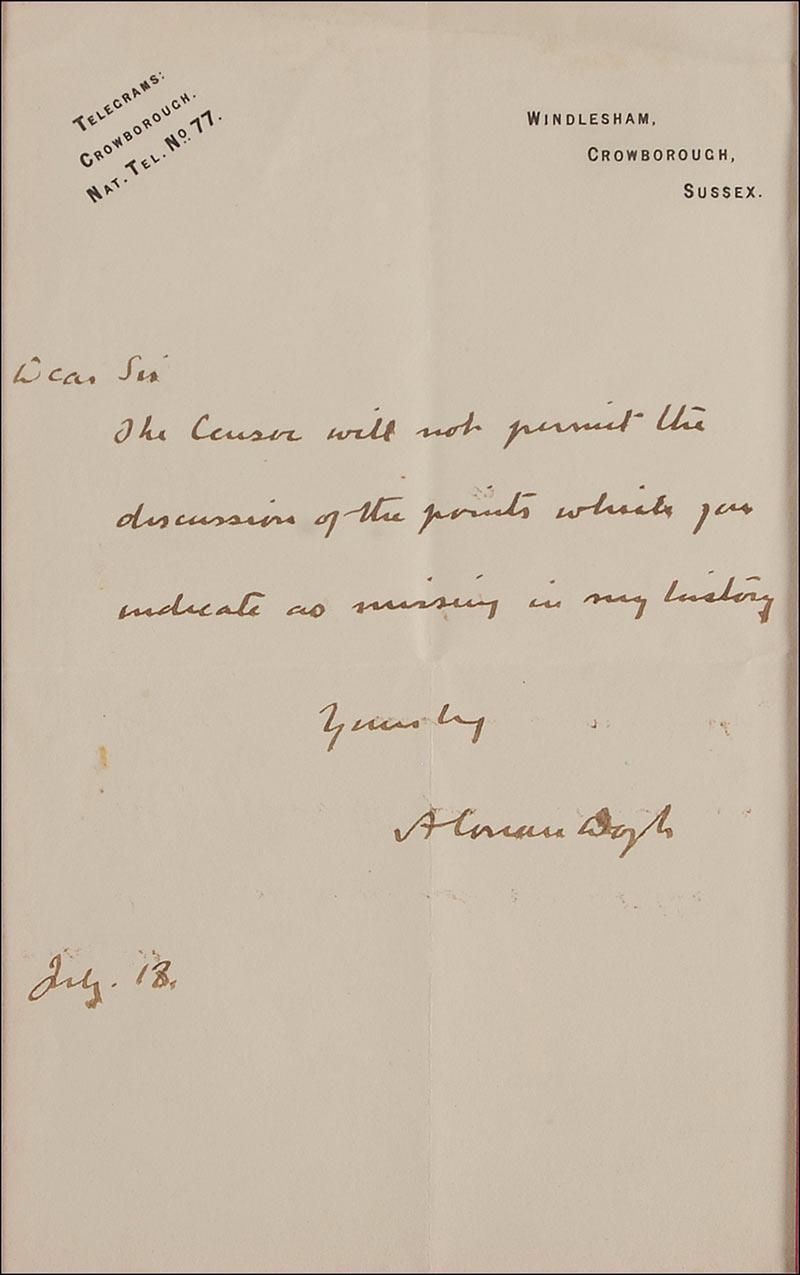 TELEGRAMS:
CROWBOROUGH.
NAT. TEL. No. 77.
WINDLESHAM,
CROWBOROUGH,
SUSSEX.
Dear Sir
The Censor will not permit the
discussion of the points which you
indicate as missing in my history
Yours try
A Conan Doyle
July. 18.